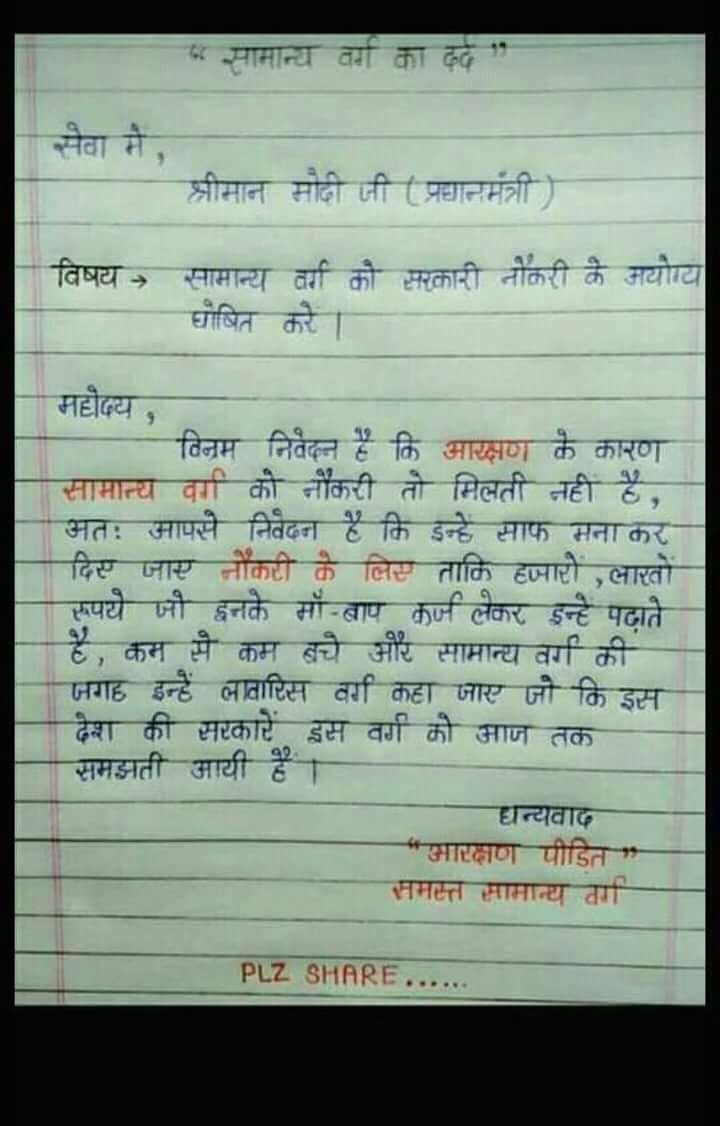 “ सामान्य वर्ग का दर्द ”
सेवा में,
श्रीमान मोदी जी ( प्रधानमंत्री )
विषय → सामान्य वर्ग को सरकारी नौकरी के अयोग्य
घोषित करें।
महोदय,
विनम्र निवेदन है कि आरक्षण के कारण
सामान्य वर्ग को नौकरी तो मिलती नहीं है,
अत: आपसे निवेदन है कि इन्हें साफ मना कर
दिए जाए नौकरी के लिए ताकि हजारों, लाखों
रूपये जो इनके माँ-बाप कर्ज लेकर इन्हें पढ़ाते
है, कम से कम बचे और सामान्य वर्ग की
जगह इन्हें लावारिस वर्ग कहा जाए जो कि इस
देश की सरकारें इस वर्ग को आज तक
समझती आयी हैं।
धन्यवाद
“आरक्षण पीड़ित”
समस्त सामान्य वर्ग
PLZ SHARE......